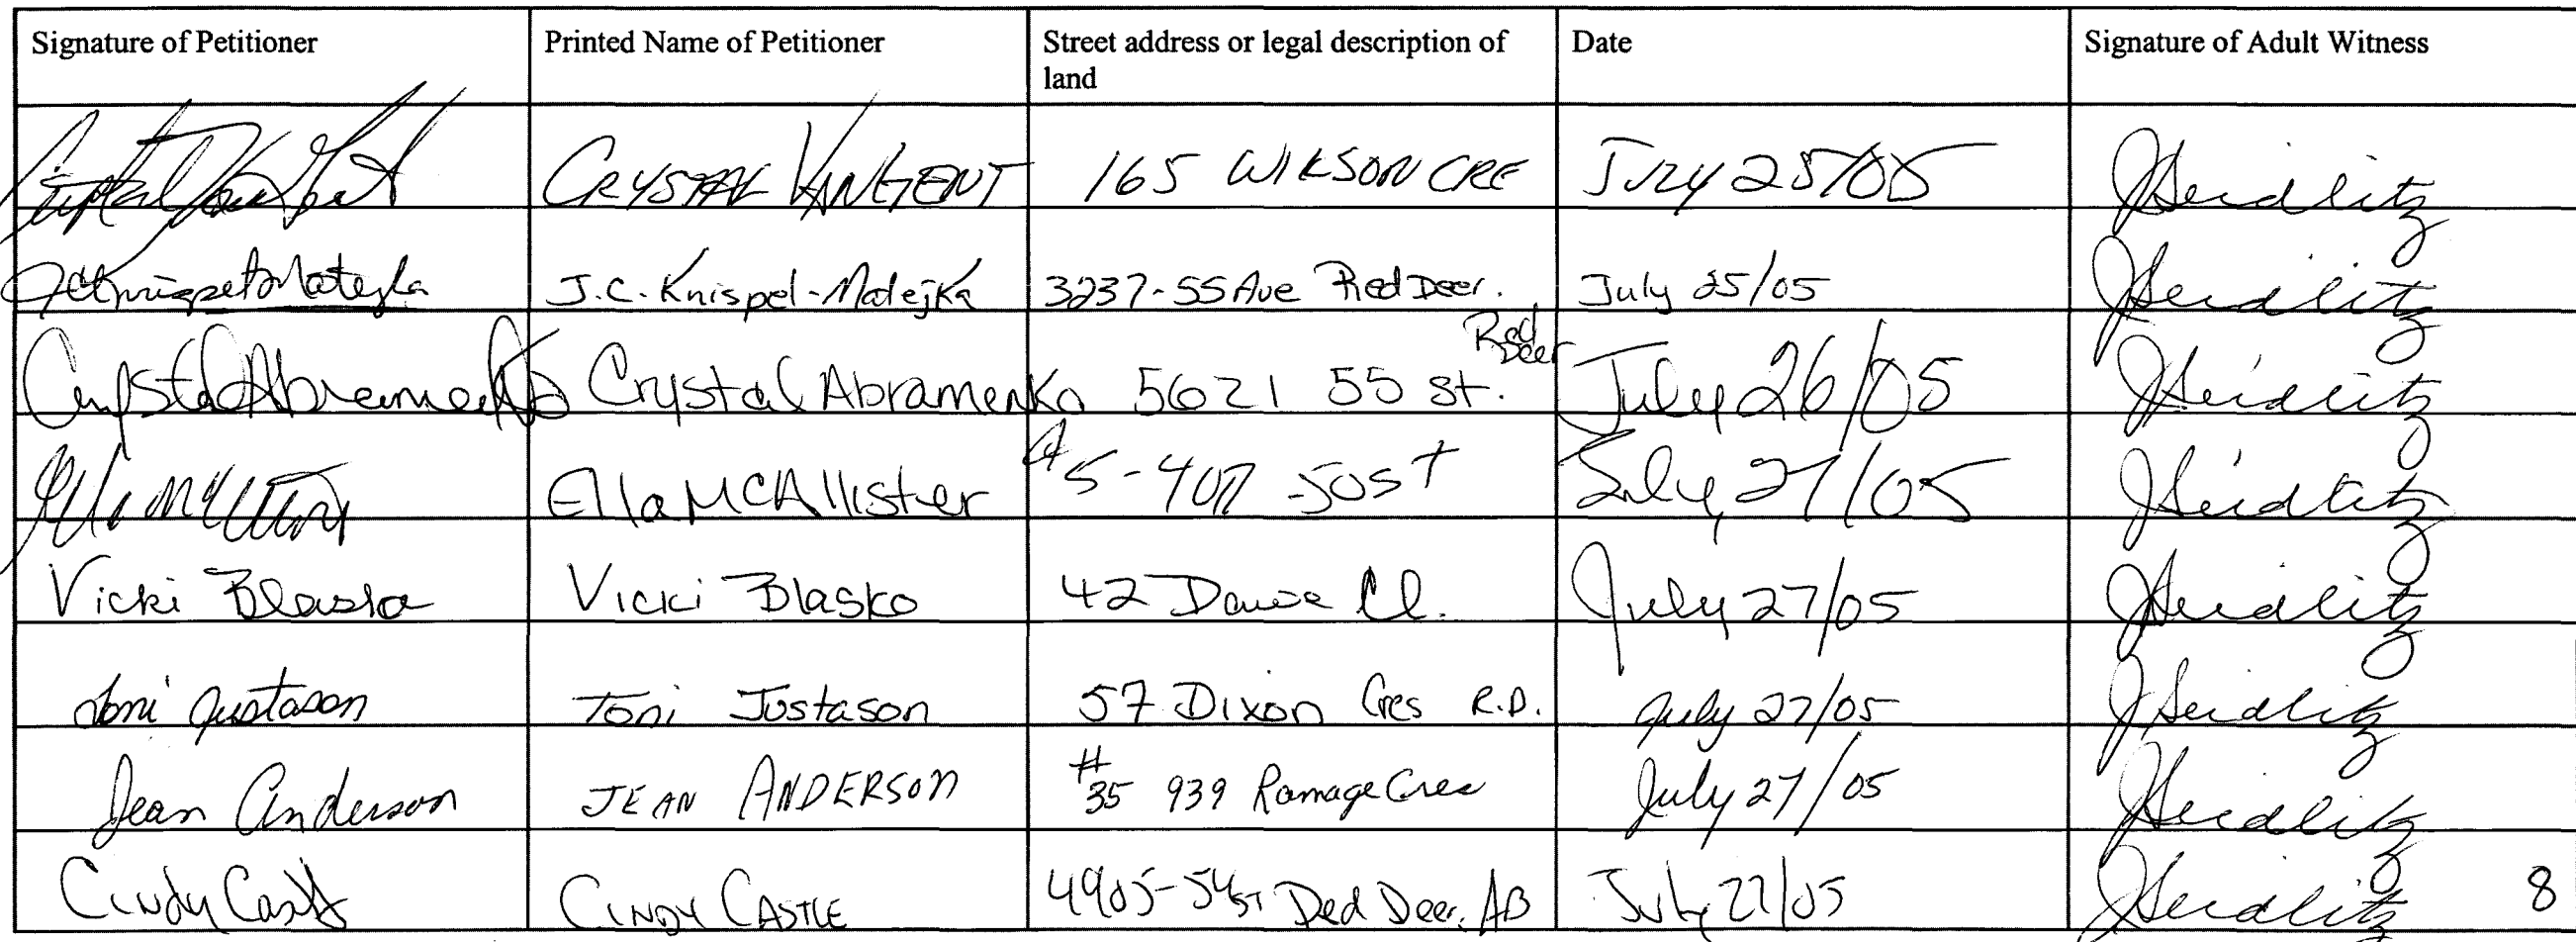 Signature of Petitioner Printed Name of Petitioner Street address or legal description of land Date Signature of Adult Witness
Crystal VanGent CRYSTAL VANGENT 165 WILSON CRE July 25/05 JSeidlitz
JCKnispel-Matejka J.C. Knispel-Matejka 3237-55 Ave Red Deer. July 25/05 JSeidlitz
Crystal Abramenko Crystal Abramenko 5621 55 st. Red Deer July 26/05 JSeidlitz
Ella McAllister Ella McAllister July 27/05 JSeidlitz
Vicki Blasko Vicki Blasko 42 Dawe Cl. July 27/05 JSeidlitz
Toni Justason Toni Justason 57 Dixon Cres R.D. July 27/05 JSeidlitz
Jean Anderson JEAN ANDERSON #35 939 Ramage Cres July 27/05 JSeidlitz
Cindy Castle CINDY CASTLE 4905-54 ST Red Deer, AB July 27/05 JSeidlitz 8